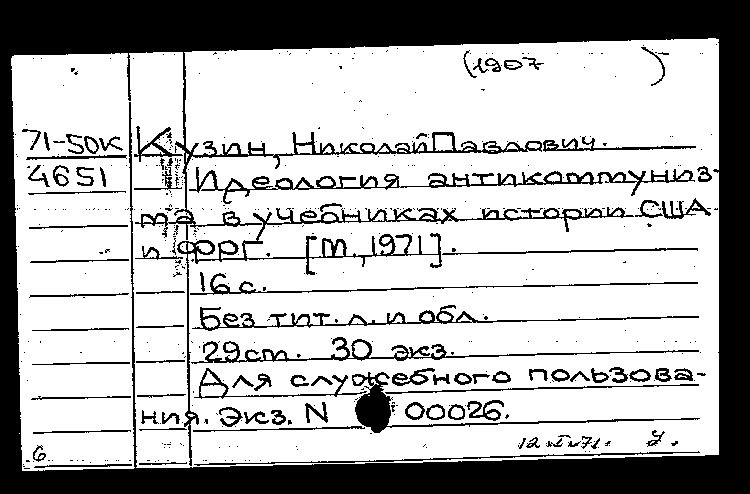 (1907 )
71-50к Кузин, Николай Павлович.
4651 Идеология антикоммуниз-
ма в учебниках истории США
и ФРГ. [М., 1971].
16 с.
Без тит. л. и обл.
29 см. 30 экз.
Для служебного пользова-
ния. Экз. N 00026.
6